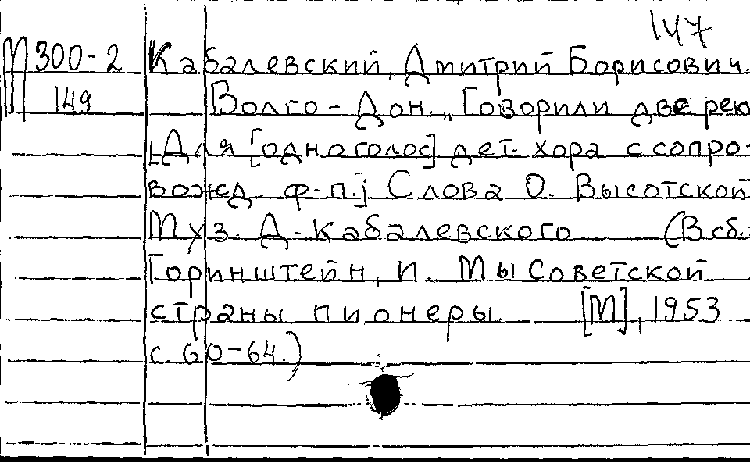 147
М300-2 Кабалевский, Дмитрий Борисович.
149 Волго-Дон. „Говорили две рек
[Для [одноголос] дет. хора с сопро-
вожд. ф-п.] Слова О. Высотской
Муз. Д. Кабалевского (В сб.:
Горинштейн, И. Мы Советской
страны пионеры. [М], 1953
с. 60-64.)